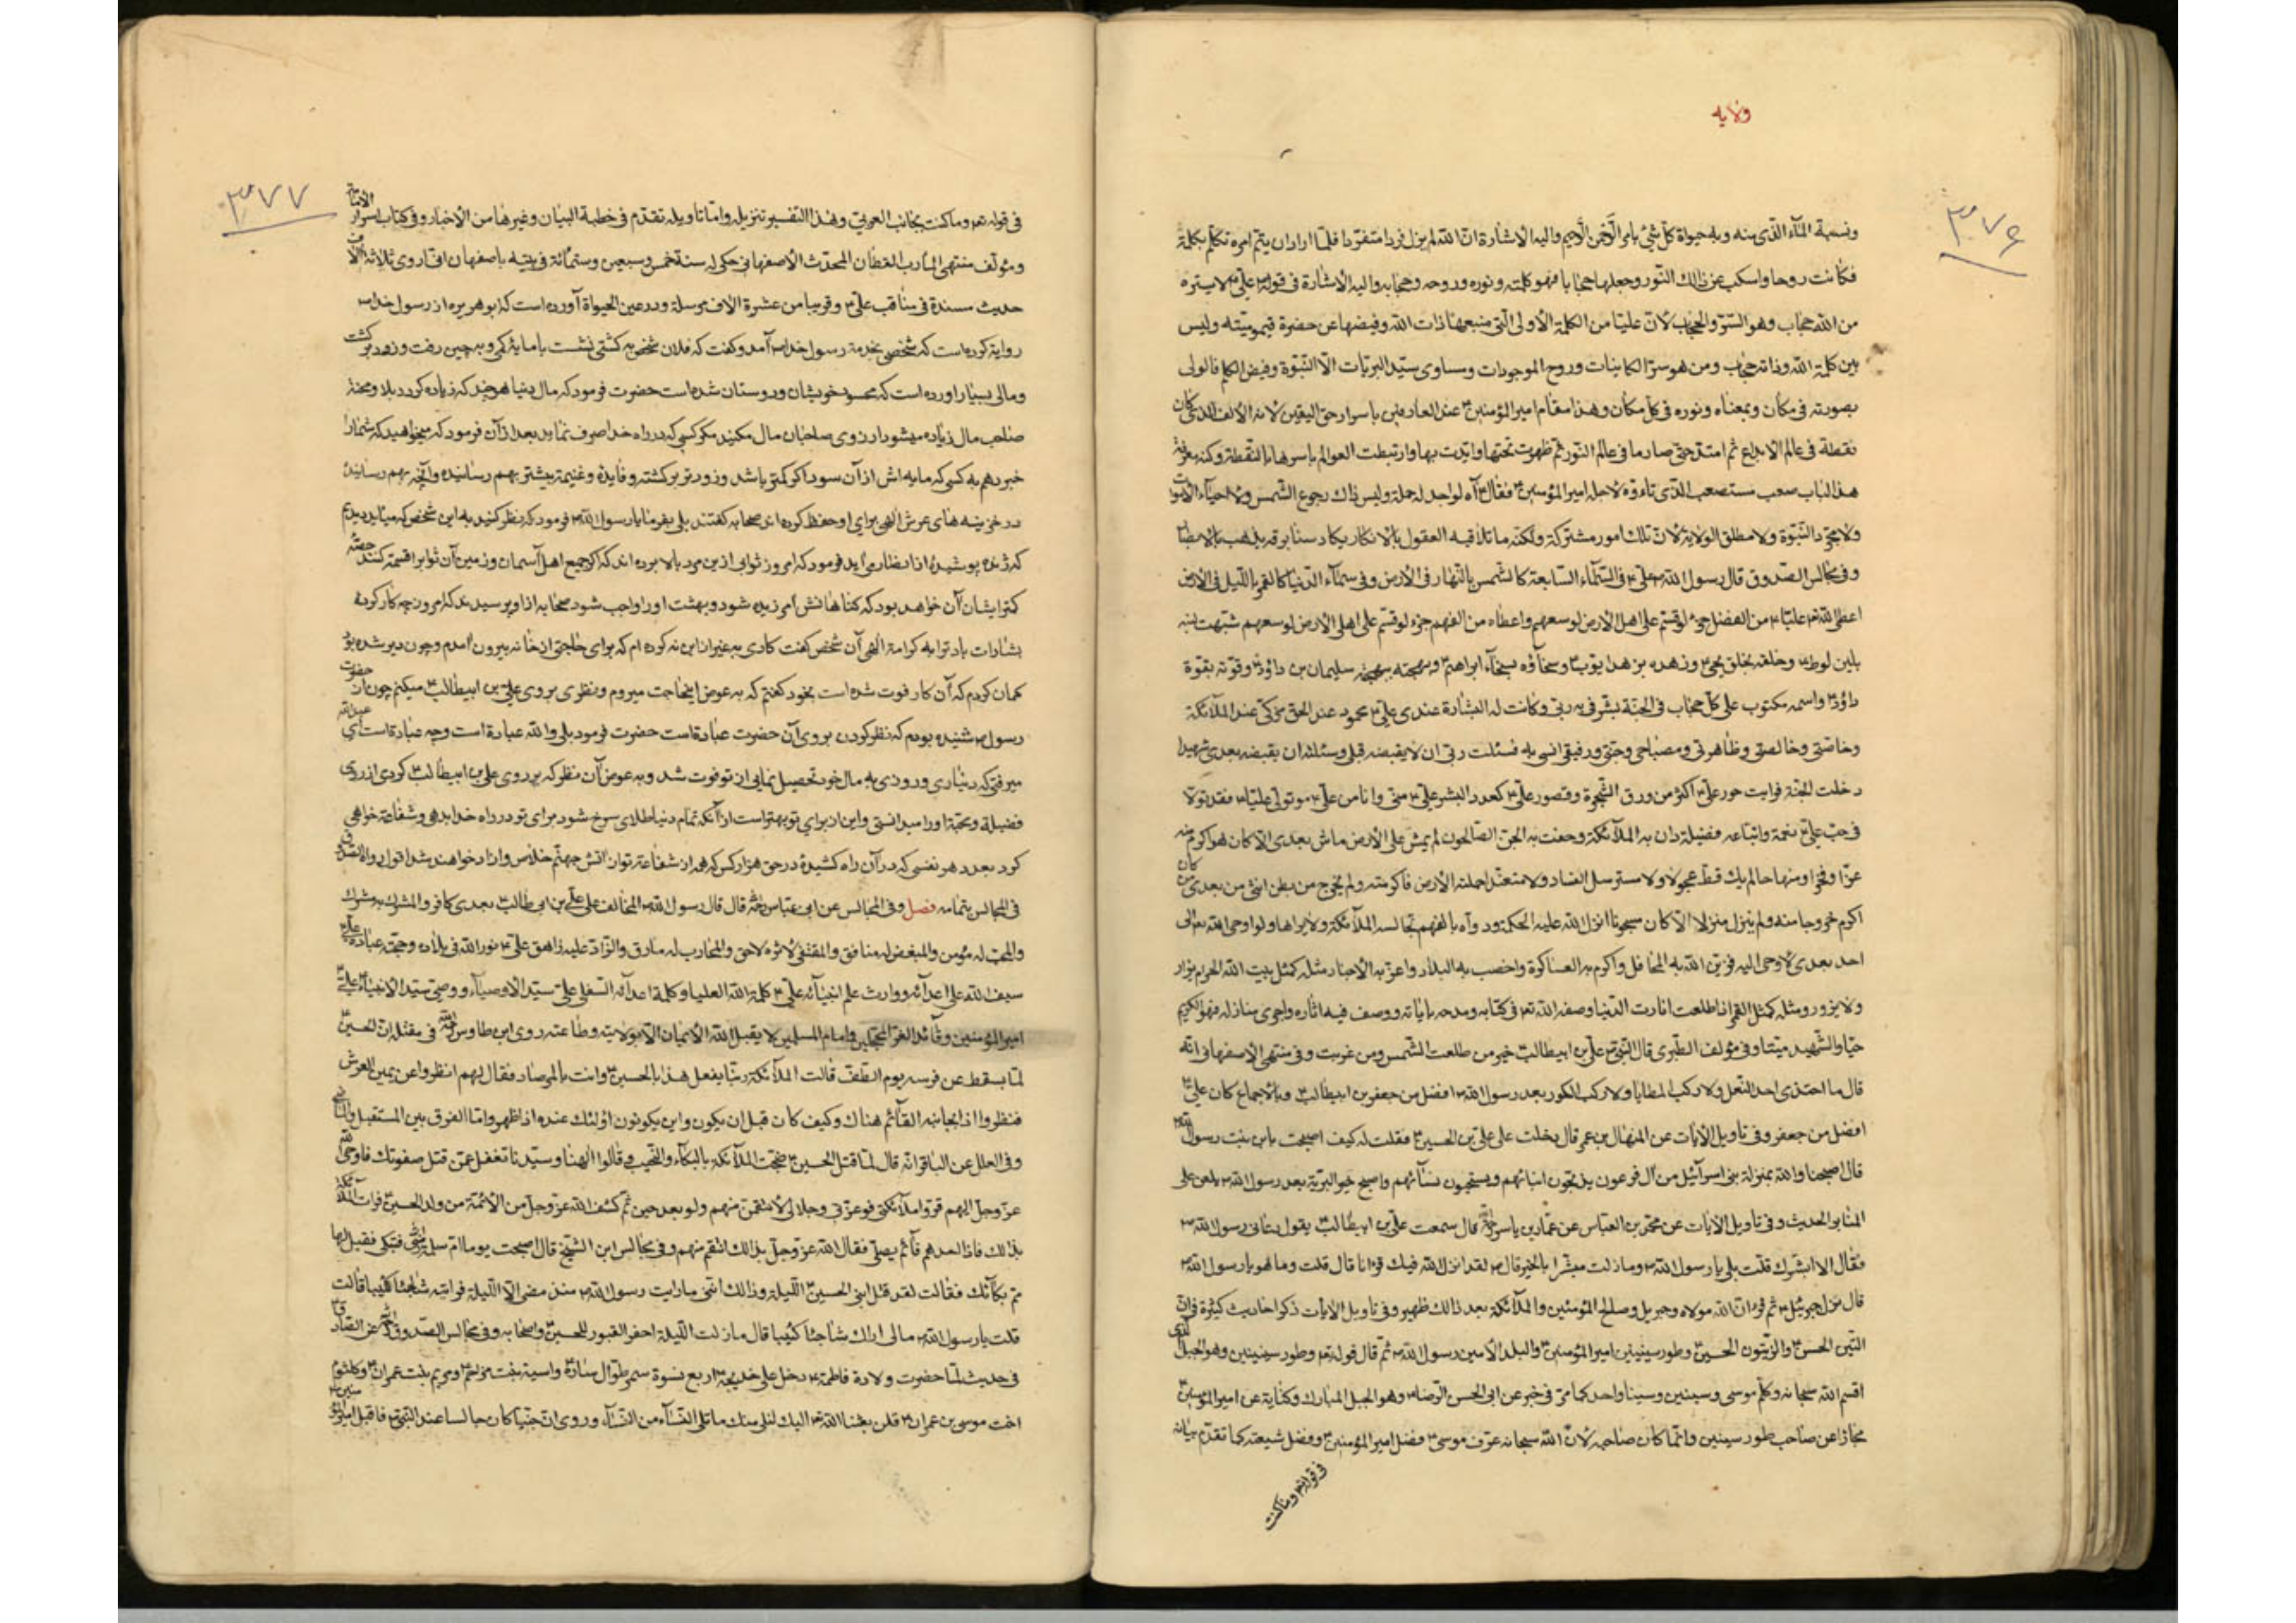 ولایه
۳۷۶
ونسبة الماء الذی منه وبه حیوة کل شیٔ بامر الرحمن الرحیم والیه الاشارة ان الله لم یزل فردا متفردا فلما اراد ان یتم امره تکلم بکلمة
فکانت روحا واسکب عن ذالک النور وجعلها حجابا فهو کلمته ونوره وروحه وحجابه والیه الاشارة فی قوله علی لا یستره
من الله حجاب وهو الستر والحجاب لان علیا من الکلمة الاولی التی منبعها ذات الله وفیضها عن حضرة قیومیته ولیس
بین کلمة الله وذاته حجاب ومن هو سر الکاینات وروح الموجودات ومساوی سید البریات الا النبوة وفیض الکلم فالولی
بصورته فی مکان وبمعناه ونوره فی کل مکان وهذا مقام امیر المؤمنین عند العارفین باسرار حق الیقین لانه الالف الذی کان
نقطة فی عالم الابداع ثم امتد حتی صار ما فی عالم النور ثم ظهرت تحتها وایدت بها وارتبطت العوالم باسرها بالنقطة وکنه معرفة
هذا الباب صعب مستصعب الذی تاوه لاجله امیر المؤمنین فقال آه لو اجد له حملة ولیس ذاک رجوع الشمس ولا احیاء الاموات
ولا مجرد النبوة ولا مطلق الولایة لان تلک امور مشترکة ولکنه ما تلاقیه العقول بالانکار یکاد سنا برقه یذهب بالابصار
وفی مجالس الصدوق قال رسول الله علی فی السماء السابعة کالشمس بالنهار فی الارض وفی سماء الدنیا کالقمر باللیل فی الارض
اعطی الله علیا من الفضل جزء لو قسم علی اهل الارض لوسعهم واعطاه من الفهم جزء لو قسم علی اهل الارض لوسعهم شبهت لینه
بلین لوط وخلقه بخلق یحیی وزهده بزهد ایوب وسخاؤه بسخاء ابراهیم وبهجته ببهجة سلیمان بن داؤد وقوته بقوة
داؤد واسمه مکتوب علی کل حجاب فی الجنة بشرنی به ربی وکانت له البشارة عندی علی محمود عند الحق مزکی عند الملآئکة
وخاصتی وخالصتی وظاهرتی ومصباحی وجنتی ورفیقی آنسی به فسئلت ربی ان لا یقبضه قبلی وسئلته ان یقبضه بعدی شهیدا
دخلت الجنة فرایت حور علی اکثر من ورق الشجرة وقصور علی کعدد البشر علی منی وانا من علی من تولی علیا فقد تولانی
فی حب علی نعمة واتباعه فضیلة دان به الملآئکة وحفت به الجن الصالحون لم یمش علی الارض ماش بعدی الا کان هو اکرم منه
عزا وفخرا ومنهاجا لم یک قط عجولا ولا مسترسل لفساد ولا متعند احملته الارض فاکرمته ولم یخرج من بطن انثی من بعدی کان
اکرم خروجا منه ولم ینزل منزلا الا کان میمونا انزل الله علیه الحکمة ورداه بالفهم تجالسه الملآئکة ولا یراها ولو اوحی الله تعالی الی
احد بعدی لاوحی الیه فزین الله به المحافل واکرم به العساکر واخصب به البلاد واعز به الاجناد مثله کمثل بیت الله الحرام یزار
ولا یزور ومثله کمثل القمر اذا طلعت انارت الدنیا وصفه الله تع فی کتابه ومدحه بایاته ووصف فیه اثاره واجری منازله فهو الکریم
حیا والشهید میتا وفی مؤلف الطبری قال النبی علی بن ابیطالب خیر من طلعت الشمس ومن غربت وفی منتهی الاصفهانی انه
قال ما احتذی احد النعل ولا رکب المطایا ولا رکب الکور بعد رسول الله افضل من جعفر بن ابیطالب وبالاجماع کان علی
افضل من جعفر وفی تاویل الآیات عن المنهال بن عمر قال دخلت علی علی بن الحسین فقلت له کیف اصبحت یابن بنت رسول الله
قال اصبحنا والله بمنزلة بنی اسرآئیل من آل فرعون یذبحون ابنائهم ویستحیون نسآئهم واصبح خیر البریة بعد رسول الله یلعن علی
المنابر الحدیث وفی تاویل الآیات عن محمد بن العباس عن عمار بن یاسر قال سمعت علی بن ابیطالب یقول دعانی رسول الله
فقال الا ابشرک قلت بلی یا رسول الله وما زلت مبشرا بالخیر قال لقد انزل الله فیک قرانا قال قلت وما هو یا رسول الله
قال نزل جبرئیل ثم قرء ان الله مولاه وجبریل وصالح المؤمنین والملآئکة بعد ذالک ظهیر وفی تاویل الآیات ذکر احادیث کثیرة فی ان
التین الحسن والزیتون الحسین وطور سینین امیر المؤمنین والبلد الامین رسول الله ثم قال قوله تع وطور سینین وهو الجبل الذی
اقسم الله سبحانه وکلم موسی وسینین وسینا واحد کما مر فی خبر عن ابی الحسن الرضا وهو الجبل المبارک وکنایة عن امیر المؤمنین
مجازا عن صاحب طور سینین وانما کان صاحبه لان الله سبحانه عرف موسی فضل امیر المؤمنین وفضل شیعته کما تقدم بیانه
فی قوله تع وما کنت
۳۷۷
فی قوله تع وما کنت بجانب الغربی وهذا التفسیر تنزیله واما تاویله تقدم فی خطبة البیان وغیرها من الاخبار وفی کتاب اسرار الامامة
ومؤلف منتهی المآرب القطان المحدث الاصفهانی حکی له سنة خمس وسبعین وستمائة فی بیته باصفهان انی اروی ثلاثة آلاف
حدیث مسندة فی مناقب علی وقریبا من عشرة الاف مرسلة ودر عین الحیواة آورده است که ابو هریره از رسول خدا
روایة کرده است که شخصی بخدمة رسول خدا آمد وکفت که فلان شخص به کشتی نشست با مایهٔ کمی وبه چین رفت وزود برکشت
ومالی بسیار اورده است که محسود خویشان ودوستان شده است حضرت فرمود که مال دنیا هر چند که زیاده کردد بلا ومحنة
صاحب مال زیاده میشود ارزوی صاحبان مال مکنید مکر کسی که در راه خدا صرف نماید بعد از آن فرمود که میخواهید که شمارا
خبر دهم به کسی که مایه اش از آن سوداکر کمتر باشد وزودتر برکشته وفایده وغنیمة بیشتر بهم رسانیده وآنچه بهم رسانیده
در خزینه های عرش الهی برای او حفظ کرده اند صحابه کفتند بلی بفرما یا رسول الله فرمود که نظر کنید به این شخص که میاید دیدیم
که ژنده پوشیدهٔ از انصار می آید فرمود که امروز ثوابی از بن مرد بالا برده اند که اکر جمیع اهل آسمان وزمین آن ثواب را قسمة کنند حصه
کمتر ایشان آن خواهد بود که کناهانش امرزیده شود وبهشت اورا واجب شود صحابه از او پرسیدند که امروز چه کار کرده
بشارات باد ترا به کرامة الهی آن شخص کفت کاری به غیر از این نه کرده ام که برای حاجتی از خانه بیرون آمدم وچون دیر شده بود
کمان کردم که آن کار فوت شده است بخود کفتم که به عوض اینحاجت میروم ونظری بروی علی بن ابیطالب میکنم چون از حضرت
رسول شنیده بودم که نظر کردن بروی آن حضرت عبادة است حضرت فرمود بلی والله عبادة است وچه عبادة است ای عبدالله
میرفتی که دیناری ورودی به مال خود تحصیل نمایی از تو فوت شد وبه عوض آن نظر که بر روی علی بن ابیطالب کردی از روی
فضیلة ومحبة اورا میدانستی واین از برای تو بهتر است از آنکه تمام دنیا طلای سرخ شود برای تو در راه خدا بدهی وشفاعة خواهی
کرد بعدد هر نفسی که در آن راه کشیدهٔ در حق هزار کس که همه از شفاعة تو از آتش جهنم خلاص وازاد خواهند شد اقول رواه الصدوق
فی المجالس بتمامه فصل وفی المجالس عن ابن عباس قال قال رسول الله المخالف علی علی بن ابی طالب بعدی کافر والمشرک به مشرک
والمحب له مؤمن والمبغض له منافق والمقتفی لاثره لاحق والمحارب له مارق والراد علیه زاهق علی نور الله فی بلاده وحجته علی عباده
سیف الله علی اعدآئه ووارث علم انبیآئه علی کلمة الله العلیا وکلمة اعدآئه السفلی علی سید الاوصیآء ووصی سید الانبیآء علی
امیر المؤمنین وقآئد الغر المحجلین وامام المسلمین لا یقبل الله الایمان الا بولایته وطاعته روی ابن طاوس فی مقتله ان الحسین
لما سقط عن فرسه یوم الطف قالت الملآئکة ربنا یفعل هذا بالحسین وانت بالمرصاد فقال لهم انظروا عن یمین العرش
فنظروا اذا بجانبه القآئم هناک وکیف کان قبل ان یکون واین یکونون اولئک عنده اذ اظهر واما الفرق بین المستقبل والماضی
وفی العلل عن الباقر انه قال لما قتل الحسین ضجت الملآئکة بالبکآء والنحیب وقالوا الهنا وسیدنا تغفل عمن قتل صفوتک فاوحی الله
عز وجل الیهم قروا ملآئکتی فوعزتی وجلالی لانتقمن منهم ولو بعد حین ثم کشف الله عز وجل من الائمة من ولد الحسین فرات الملآئکة
بذالک فاذا احدهم قآئم یصلی فقال الله عز وجل بذالک انتقم منهم وفی مجالس ابن الشیخ قال اصبحت یوما ام سلمة تبکی فقیل لها
مم بکآئک فقالت لقد قتل ابنی الحسین اللیلة وذالک اننی ما رایت رسول الله منذ مضی الا اللیلة فرایته شاحبا کئیبا قالت
قلت یا رسول الله مالی اراک شاحبا کئیبا قال ما زلت اللیلة احفر القبور للحسین واصحابه وفی مجالس الصدوق عن الصادق
فی حدیث لما حضرت ولادة فاطمة دخل علی خدیجة اربع نسوة سمر طوال سارة واسیة بنت مزاحم ومریم بنت عمران وکلثوم
اخت موسی بن عمران قلن بعثنا الله الیک لنلی منک ما تلی النسآء من النسآء وروی ان جنیا کان جالسا عند النبی فاقبل امیر المؤمنین